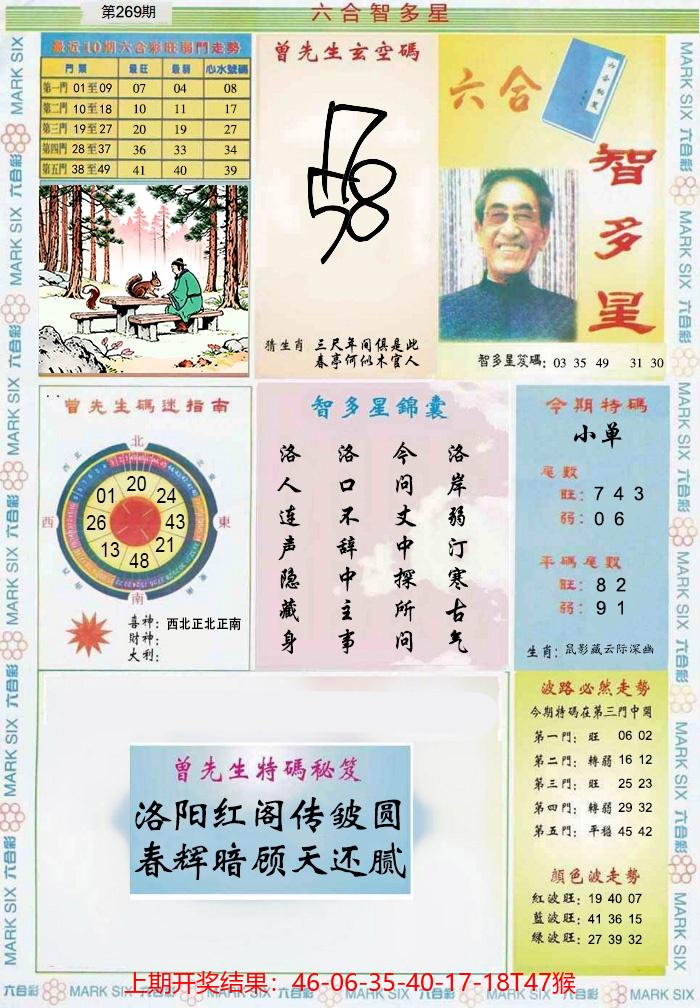 第269期
六合智多星
最近10期六合彩旺弱門走勢
門類 最旺 最弱 心水號碼
第一門 01至09 07 04 08
第二門 10至18 10 11 17
第三門 19至27 20 19 27
第四門 28至37 36 33 34
第五門 38至49 41 40 39
曾先生玄空碼
猜生肖 三尺年间俱是此
春亭何似木官人
六合
智多星
智多星笈碼: 03 35 49 31 30
曾先生碼迷指南
北
西
東
南
20
24
43
21
48
13
26
01
喜神: 西北正北正南
財神:
大利:
智多星錦囊
洛岸弱汀寒古气
今问文中探所问
洛口不辞中主事
洛人连声隐藏身
今期特碼
小单
尾數
旺: 7 4 3
弱: 0 6
平碼尾數
旺: 8 2
弱: 9 1
生肖: 鼠影藏云际深幽
曾先生特碼秘笈
洛阳红阁传皱圆
春辉暗顾天还腻
波路必然走勢
今期特碼在第三門中開
第一門: 旺 06 02
第二門: 轉弱 16 12
第三門: 旺 25 23
第四門: 轉弱 29 32
第五門: 平穩 45 42
顔色波走勢
紅波旺: 19 40 07
藍波旺: 41 36 15
綠波旺: 27 39 32
上期开奖结果: 46-06-35-40-17-18T47猴
MARK SIX 六合彩